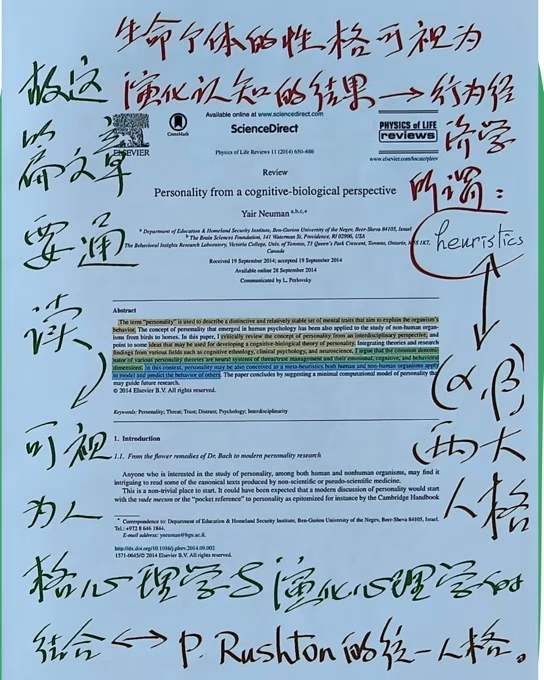 生命个体的性格可视为
演化认知的结果→行为经
济学
所谓:
heuristics
(α,β)
两大
人格
故这
篇文章
要通
读
可视
为人
格心理学与演化心理学的
结合↔P. Rushton的统一人格。
Available online at www.sciencedirect.com
ScienceDirect
ELSEVIER
CrossMark
PHYSICS of LIFE
reviews
Physics of Life Reviews 11 (2014) 650–686
www.elsevier.com/locate/plrev
Review
Personality from a cognitive-biological perspective
Yair Neuman a,b,c,*
a Department of Education & Homeland Security Institute, Ben-Gurion University of the Negev, Beer-Sheva 84105, Israel
b The Brain Sciences Foundation, 141 Waterman St, Providence, RI 02906, USA
The Behavioral Insights Research Laboratory, Victoria College, Univ. of Toronto, 73 Queen's Park Crescent, Toronto, Ontario, 1K7,
Canada
Received 19 September 2014; accepted 19 September 2014
Available online 28 September 2014
Communicated by L. Perlovsky
Abstract
The term "personality" is used to describe a distinctive and relatively stable set of mental traits that aim to explain the organism's
behavior. The concept of personality that emerged in human psychology has been also applied to the study of non-human organ-
isms from birds to horses. In this paper, I critically review the concept of personality from an interdisciplinary perspective, and
point to some ideas that may be used for developing a cognitive-biological theory of personality. Integrating theories and research
findings from various fields such as cognitive ethnology, clinical psychology, and neuroscience, I argue that the common denomi-
nator of various personality theories are neural systems of threat/trust management and their emotional, cognitive, and behavioral
dimensions. In this context, personality may be also conceived as a meta-heuristics both human and non-human organisms apply
to model and predict the behavior of others. The paper concludes by suggesting a minimal computational model of personality that
may guide future research.
© 2014 Elsevier B.V. All rights reserved.
Keywords: Personality; Threat; Trust; Distrust; Psychology; Interdisciplinarity
1. Introduction
1.1. From the flower remedies of Dr. Bach to modern personality research
Anyone who is interested in the study of personality, among both human and nonhuman organisms, may find it
intriguing to read some of the canonical texts produced by non-scientific or pseudo-scientific medicine.
This is a non-trivial place to start. It could have been expected that a modern discussion of personality would start
with the vade mecum or the "pocket reference" to personality as epitomized for instance by the Cambridge Handbook
* Correspondence to: Department of Education & Homeland Security Institute, Ben-Gurion University of the Negev, Beer-Sheva 84105, Israel.
Tel.: +972 8 646 1844.
E-mail address: yneuman@bgu.ac.il.
http://dx.doi.org/10.1016/j.plrev.2014.09.002
1571-0645/© 2014 Elsevier B.V. All rights reserved.